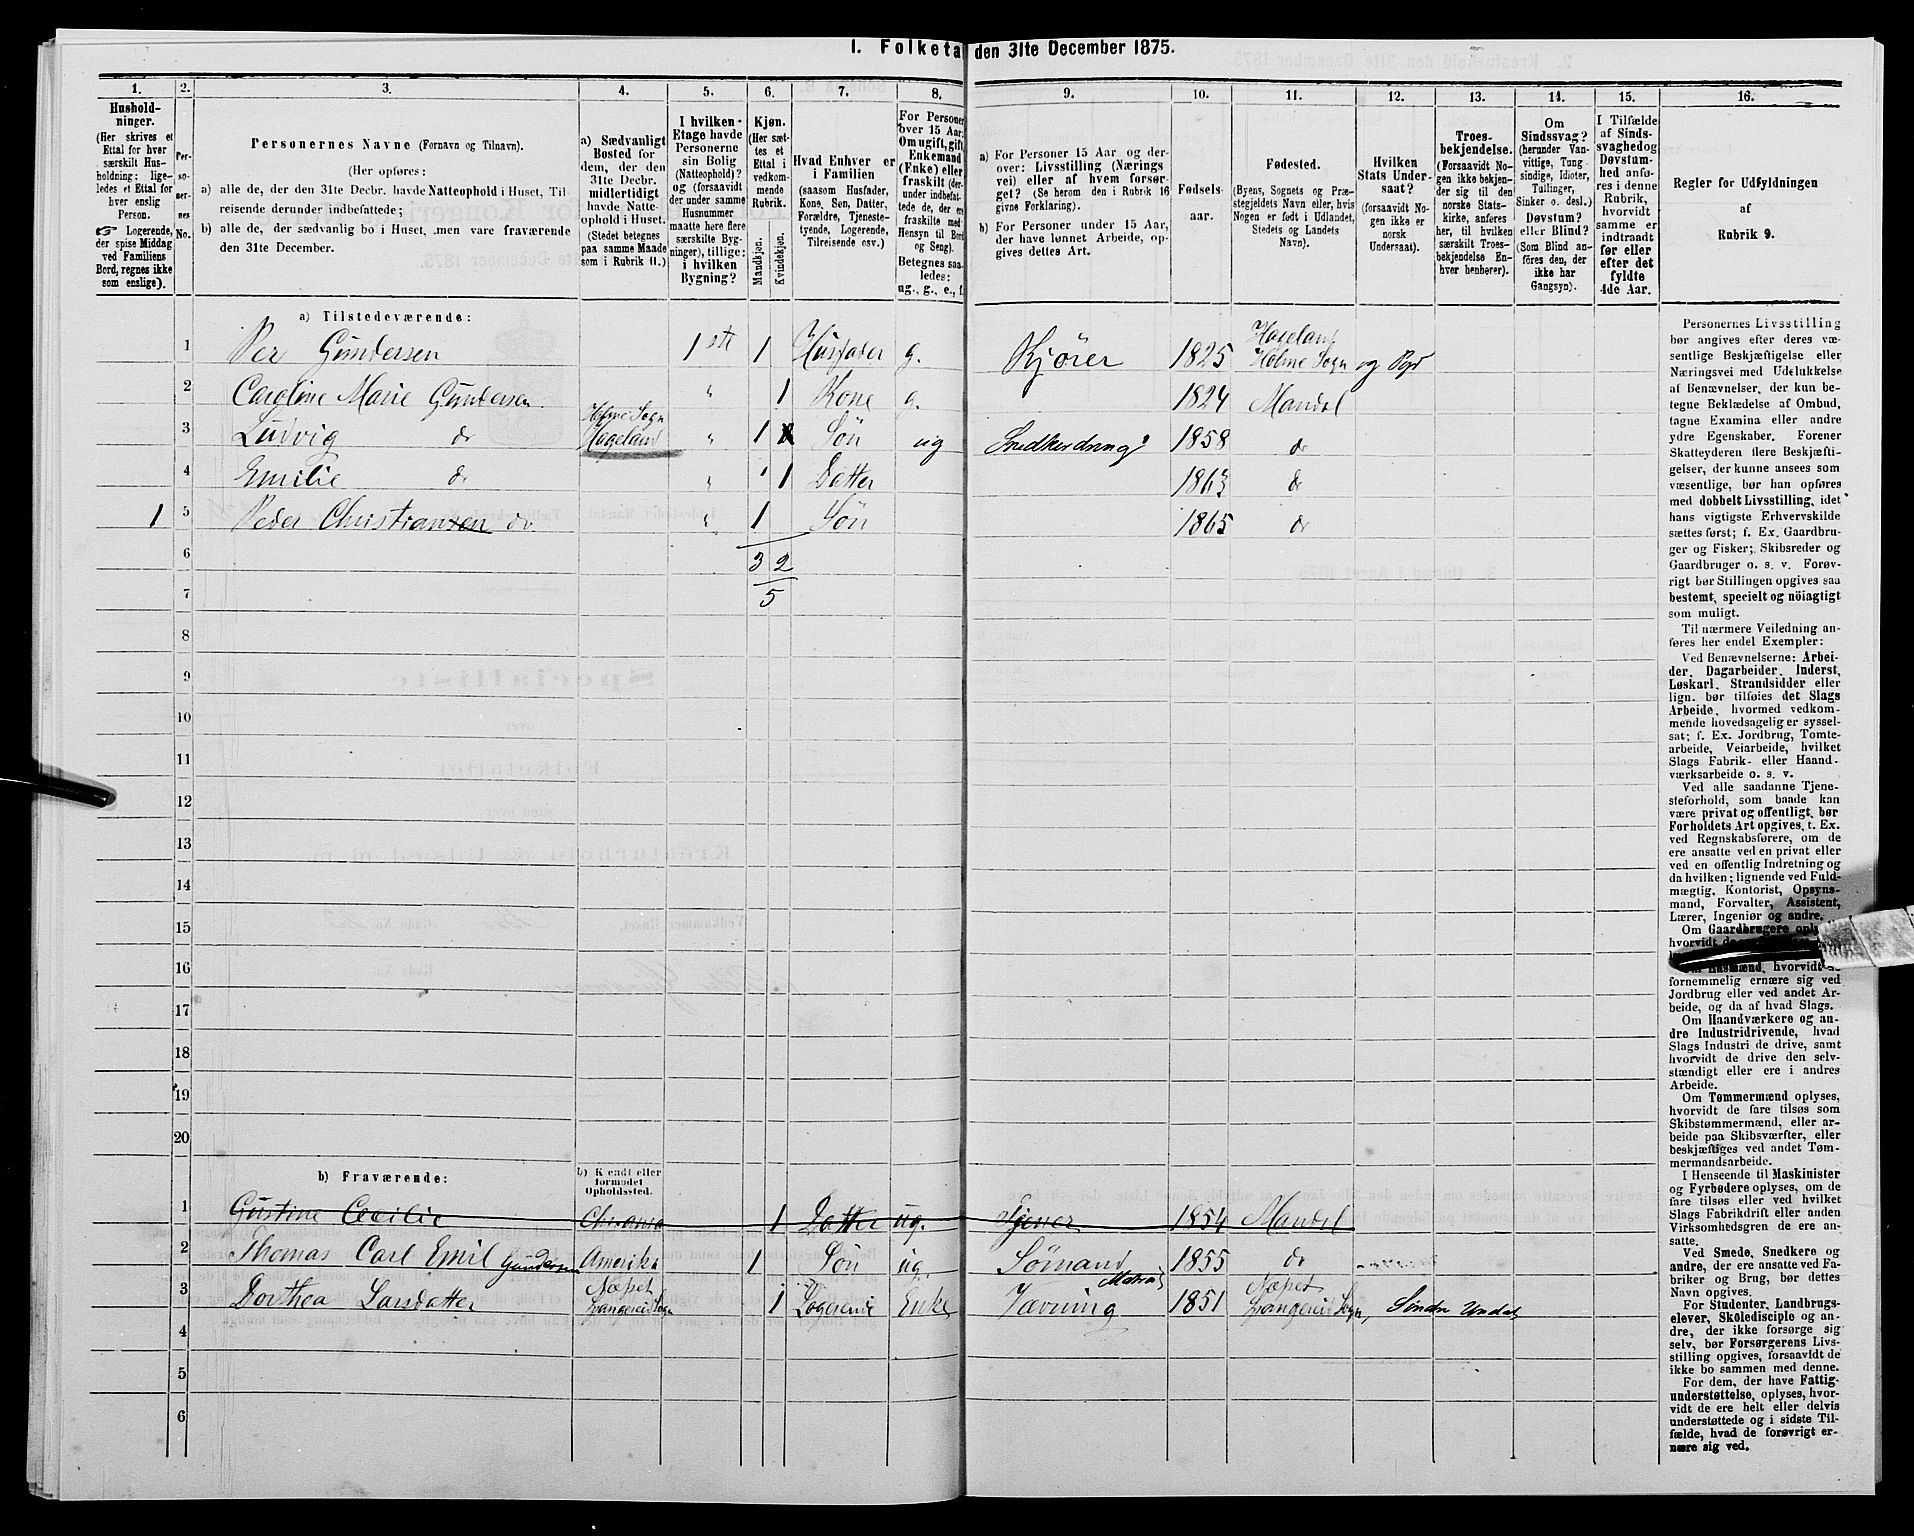 1. Folketa den 31te December 1875.
1. 2. 3. 4. 5. 6. 7. 8. 9. 10. 11. 12. 13. 14. 15. 16.
Hushold-
ninger.
(Her skrives et
Ettal for hver
særskilt Hus-
holdning; lige-
ledes et Ettal for
hver enslig
Person.
☞ Logerende,
der spise Middag
ved Familiens
Bord, regnes ikke
som enslige).
Per-
so-
ner-
nes
No.
Personernes Navne (Fornavn og Tilnavn).
(Her opføres:
a) alle de, der den 31te Decbr. havde Natteophold i Huset, Til-
reisende derunder indbefattede;
b) alle de, der sædvanlig bo i Huset, men vare fraværende
den 31te December.
a) Sædvanligt
Bosted for
dem, der den
31te Decbr.
midlertidigt
havde Natte-
ophold i Huset.
(Stedet betegnes
paa samme Maade
som i Rubrik 11.)
I hvilken
Etage havde
Personerne
sin Bolig
(Natteophold)?
og (forsaavidt
der under samme
Husnummer
maatte høre flere
særskilte Byg-
ninger), tillige:
i hvilken
Bygning?
Kjøn.
(Her sæt-
tes et
Ettal i
vedkom-
mende
Rubrik.
Mandkjøn.
Kvindekjøn.
Hvad Enhver er
i Familien
(saasom Husfader,
Kone, Søn, Datter,
Forældre, Tjeneste-
tyende, Logerende,
Tilreisende osv.)
For Personer
over 15 Aar:
Om ugift, gift,
Enkemand
(Enke) eller
fraskilt (der-
under indbefat-
tede de, der ere
fraskilte med
Hensyn til Bord
og Seng).
Betegnes saa-
ledes:
ug., g., e., f.
a) For Personer 15 Aar og der-
over: Livsstilling (Nærings
vei) eller af hvem forsør-
get? (Se herom den i Rubrik 16
givne Forklaring).
b) For Personer under 15 Aar,
der have lønnet Arbeide, op-
gives dettes Art.
Fødsels-
aar.
Fødested.
(Byens, Sognets og Præ-
stegjeldets Navn eller, hvis
Nogen er født i Udlandet,
Stedets og Landets
Navn).
Hvilken
Stats Under-
saat?
(forsaavidt No-
gen ikke er
norsk
Undersaat).
Troes-
bekjendelse.
(Forsaavidt No-
gen ikke bekjen-
der sig til den
norske Stats-
kirke, anføres
her, til hvilken
særskilt Troes-
bekjendelse En-
hver henhører).
Om
Sindssvag?
(herunder Van-
vittige, Tung
sindige, Idioter,
Tullinger,
Sinker o. desl.)
Døvstum?
eller Blind?
(Som Blind an-
føres den, der
ikke har
Gangsyn).
I Tilfælde
af Sinds-
svaghed og
Døvstum-
hed anfø-
res i denne
Rubrik,
hvorvidt
samme er
indtraadt
før eller
efter det
fyldte
4de Aar.
Regler for Udfyldningen
af
Rubrik 9.
a) Tilstedeværende:
1 Per Gundersen 1 ste 1 Husfader g. Kjører 1825 Hageland Holme Sogn og Pgd
2 Caroline Marie Gundersen " 1 Kone g. 1824 Mandal
3 Ludvig do Holme Sogn Hageland " 1 Søn ug 1858 do
4 Emilie do " 1 Datter 1863 do
1 5 Peder Christiansen do " 1 Søn 1865 do
6 3 2
7 5
8
9
10
11
12
13
14
15
16
17
18
19
20
b) Fraværende:
b) Kjendt eller
formodet
Opholdssted.
1 Gustine Cecilie Chrania 1 Datter ug. Tjener 1854 Mandal
2 Thomas Carl Emil Gundersen Amerika 1 Søn ug. Sømand 1855 do
Matros
3 Dorthea Larsdatter 1 Logerende Enke 1851 Søndre Undal
4
5
6
Personernes Livsstilling
bør angives efter deres væ-
sentlige Beskjæftigelse eller
Næringsvei med Udelukkelse
af Benævnelser, der kun be-
tegne Beklædelse af Ombud,
tagne Examina eller andre
ydre Egenskaber. Forener
Skatteyderen flere Beskjæfti-
gelser, der kunne ansees som
væsentlige, bør han opføres
med dobbelt Livsstilling, idet
hans vigtigste Erhvervskilde
sættes først; f. Ex. Gaardbru-
ger og Fisker; Skibsreder og
Gaardbruger o. s. v. Forøv-
rigt bør Stillingen opgives saa
bestemt, specielt og nöiagtigt
som muligt.
Til nærmere Veiledning an-
føres her endel Exempler:
Ved Benævnelserne: Arbei-
der, Dagarbeider, Inderst,
Løskarl, Strandsidder eller
lign. bør tilføies det Slags
Arbeide, hvormed vedkom-
mende hovedsagelig er syssel-
sat; f. Ex. Jordbrug, Tomte-
arbeide, Veiarbeide, hvilket
Slags Fabrik- eller Haand-
værksarbeide o. s. v.
Ved alle saadanne Tjene-
steforhold, som baade kan
være privat og offentligt, bør
Forholdets Art opgives, t. Ex.
ved Regnskabsførere, om de
ere ansatte ved en privat eller
ved en offentlig Indretning og
da hvilken; lignende ved Fuld-
mægtig, Kontorist, Opsyns-
mand, Forvalter, Assistent,
Lærer, Ingeniør og andre.
Om Gaardbrugere
hvorvidt
Om Husmænd, hvorvidt
fornemmelig ernære sig ved
Jordbrug eller ved andet Ar-
beide, og da af hvad Slags.
Om Haandværkere og an-
dre Industridrivende, hvad
Slags Industri de drive, samt
hvorvidt de drive den selv-
stændigt eller ere i andres
Arbeide.
Om Tømmermænd oplyses,
hvorvidt de fare tilsøs som
Skibstømmermænd, eller ar-
beide paa Skibsværfter, eller
beskjæftiges ved andet Tøm-
mermandsarbeide.
I Henseende til Maskinister
og Fyrbødere oplyses, om de
fare tilsøs eller ved hvilket
Slags Fabrikdrift eller anden
Virksomhedsgren de ere an-
satte.
Ved Smede, Snedkere og
andre, der ere ansatte ved Fa-
briker og Brug, bør dettes
Navn opgives.
For Studenter, Landbrugs-
elever, Skoledisciple og an-
dre, der ikke forsørge sig
selv, bør Forsørgerens Livs-
stilling opgives, forsaavidt de
ikke bo sammen med denne.
For dem, der have Fattig-
understøttelse, oplyses, hvor-
vidt de ere helt eller delvis
understøttede og i sidste Til-
fælde, hvad de forøvrigt er-
nære sig ved.